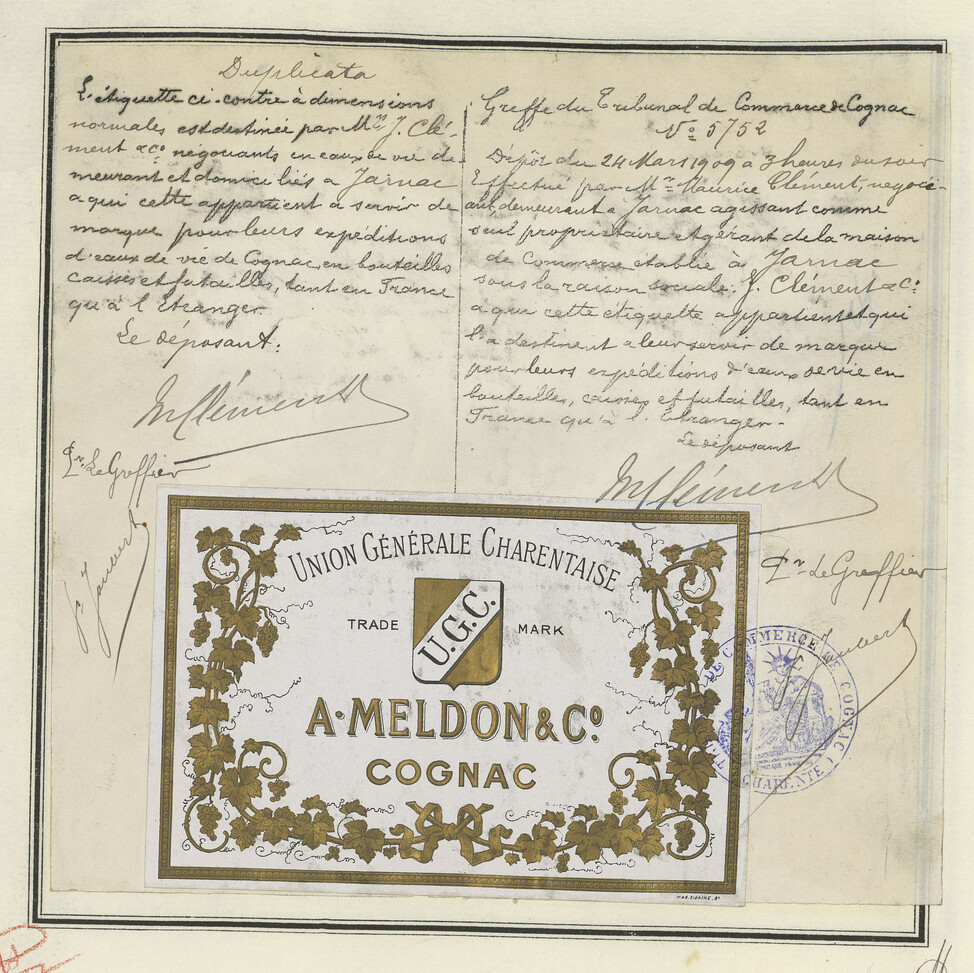 Duplicata
L'étiquette ci-contre à dimensions
normales est destinée par MM. J. Clé-
ment & Co négociants en eaux de vie de-
meurant et domiciliés à Jarnac
a qui cette appartient a servir de
marque pour leurs expéditions
d'eaux de vie de Cognac, en bouteilles
caisses et futailles, tant en France
qu'à l'Etranger.
Le déposant:
M Clément
Pr. Le Greffier
Joubert
Greffe du Tribunal de Commerce de Cognac
No 5752
Dépôt du 24 Mars 1909 à 3 heures du soir
Effectué par Mr Maurice Clément, négoci-
ant, demeurant a Jarnac agissant comme
seul propriétaire et gérant de la maison
de Commerce établie à Jarnac
sous la raison sociale: J. Clément & Co
à qui cette étiquette appartient et qui
la destinent a leur servir de marque
pour leurs expéditions d'eaux de vie en
bouteilles, caisses et futailles, tant en
France qu'à l'Etranger.
Le déposant
M Clément
Pr Le Greffier
Joubert
UNION GÉNÉRALE CHARENTAISE
TRADE MARK
U.G.C.
A. MELDON & Co.
COGNAC
DE COMMERCE DE COGNAC
(CHARENTE)